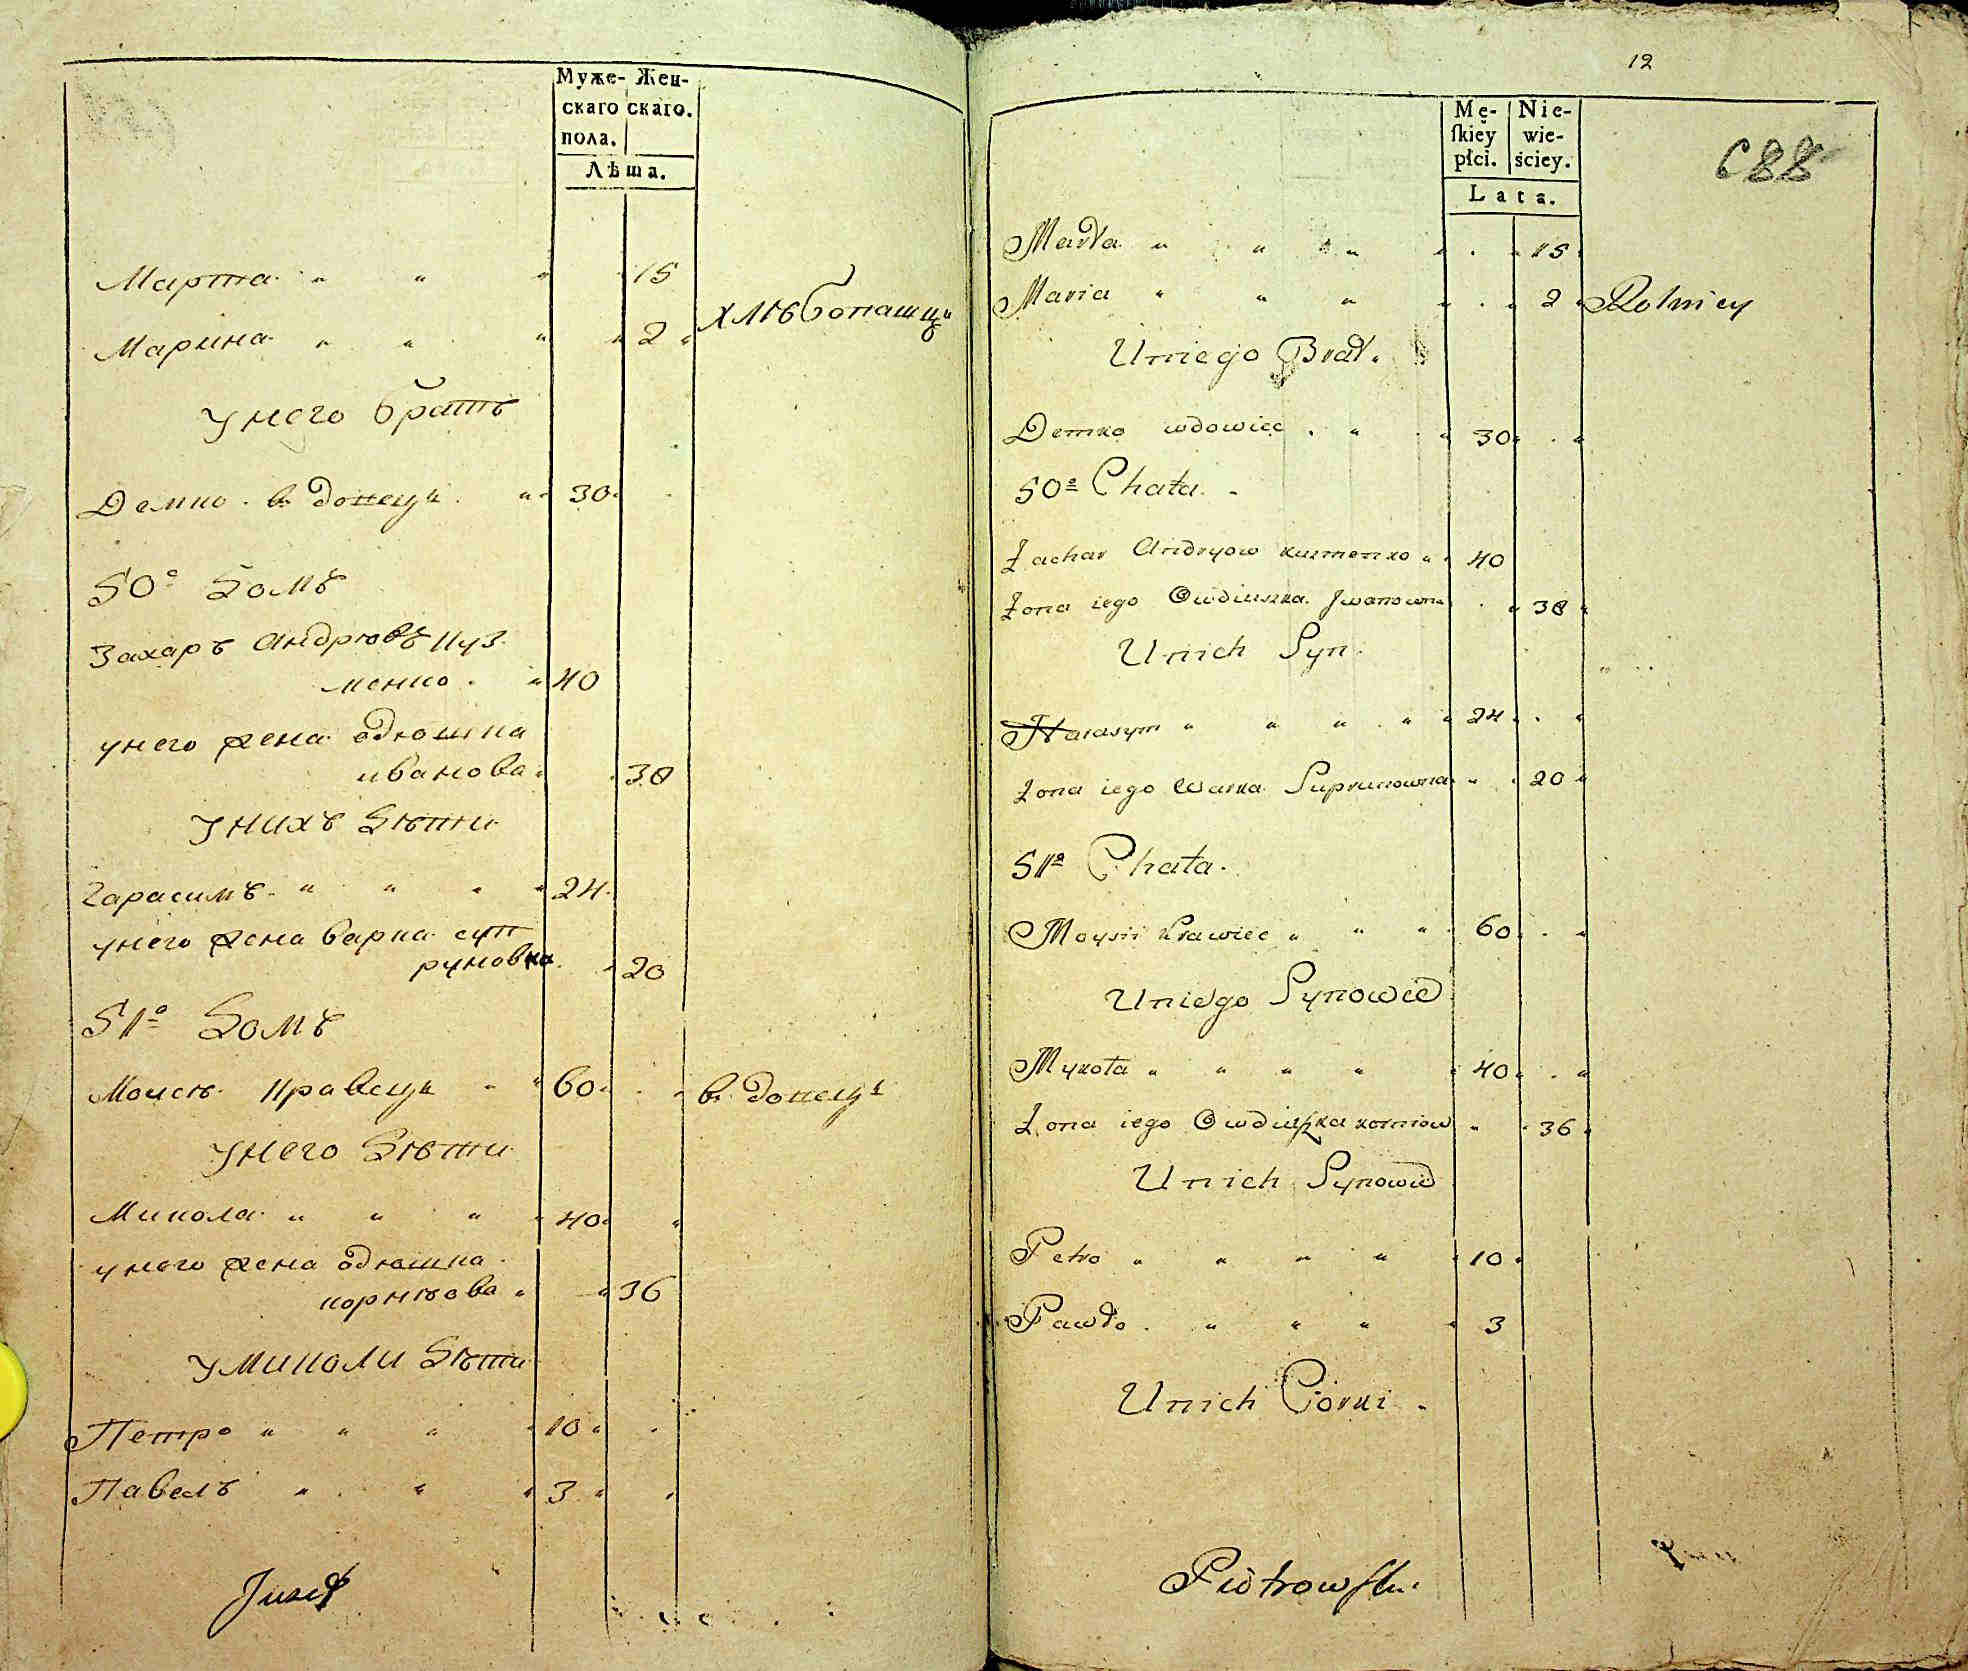 Муже- Жен-
скаго скаго.
пола.
Лѣта.
Марта " " " 15
Марина " " " " 2 " хлѣбопашцы
у него братъ
Демко вдовецъ " 30
50º Домъ
Захаръ Андрюовъ Куз
менко " 40
у него жена Одюшка
иванова 38
у нихъ дѣти
Гарасимъ " " " " 24
у него жена варка суп
руновна 20
51º Домъ
Моисѣ Кравецъ " " 60 вдовецъ
у него дѣти
Микола " " " " 40 "
у него жена Одюшка
корнѣова " " 36
у Миколи дѣти
Петро " " " " 10
Павелъ " " " 3 "
Jusef
12
688
Mę- Nie-
skiey wie-
płci. ściey.
Lata.
Marta " " " " 15
Maria " " " " 2 Rolnicy
Uniego Brat
Demko wdowiec " " 30
50ª Chata
Zachar Andryow kuzmenko " 40
Żona iego Owdiuszka Jwanowna 38
Unich Syn
Harasym " " " " " 24
Żona iego Warka Suprunowna " 20
51ª Chata
Moysii Krawiec " " " 60
Uniego Synowie
Mykoła " " " " 40
Żona iego Owdiuszka korniow " 36
Unich Synowie
Petro " " " " 10
Pawło " " " " 3
Unich Córki
Piotrowski